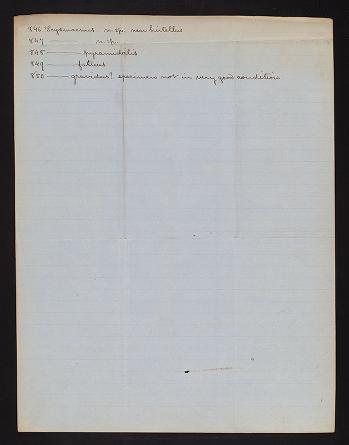 846 Scydmaenus n. sp. near hirtellus
847 ——— n. sp.
848 ——— pyramidalis
849 ——— fatuus
850 ——— gravidus? specimen not in very good condition